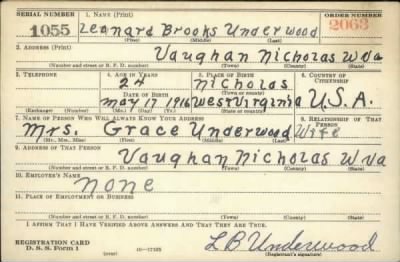 SERIAL NUMBER 1. NAME (Print) ORDER NUMBER
1055 Leonard Brooks Underwood 2063
(First) (Middle) (Last)
2. ADDRESS (Print)
Vaughan Nicholas W Va
(Number and street or R. F. D. number) (Town) (County) (State)
3. TELEPHONE 4. AGE IN YEARS 5. PLACE OF BIRTH 6. COUNTRY OF CITIZENSHIP
24 Nicholas
DATE OF BIRTH (Town or county)
May 17 1916 West Virginia U.S.A.
(Exchange) (Number) (Mo.) (Day) (Yr.) (State or country)
7. NAME OF PERSON WHO WILL ALWAYS KNOW YOUR ADDRESS 8. RELATIONSHIP OF THAT PERSON
Mrs. Grace Underwood Wife
(Mr., Mrs., Miss) (First) (Middle) (Last)
9. ADDRESS OF THAT PERSON
Vaughan Nicholas W Va
(Number and street or R. F. D. number) (Town) (County) (State)
10. EMPLOYER'S NAME
None
11. PLACE OF EMPLOYMENT OR BUSINESS
(Number and street or R. F. D. number) (Town) (County) (State)
I AFFIRM THAT I HAVE VERIFIED ABOVE ANSWERS AND THAT THEY ARE TRUE.
REGISTRATION CARD
D. S. S. Form 1 (over) L B Underwood
(Registrant's signature)